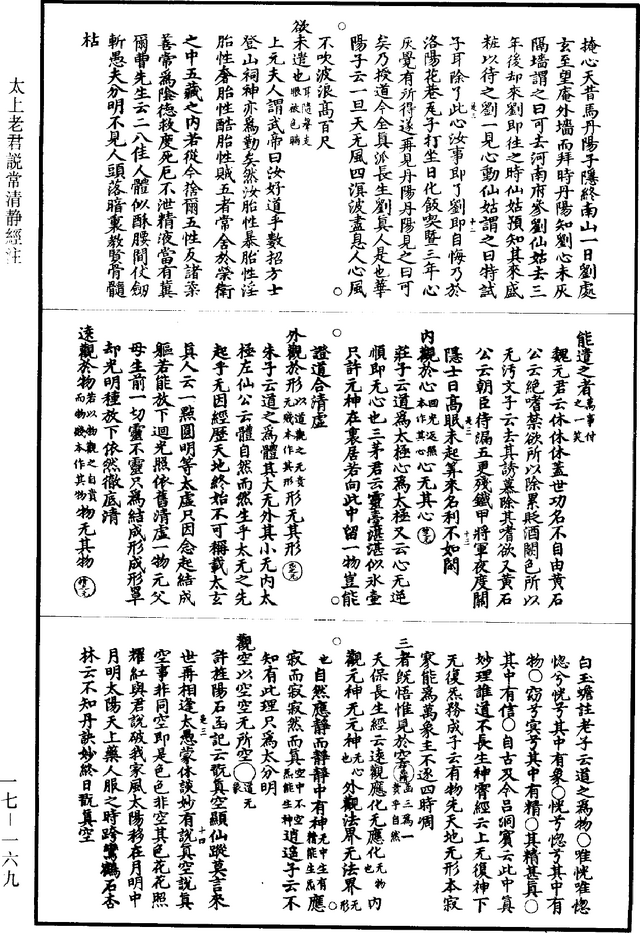 掩心天昔馬丹陽子隱終南山一日劉處
玄至望庵外墻而拜時丹陽知劉心未灰
隔墻謂之曰可去河南府參劉仙姑去三
年後却來劉即往之時仙姑預知其來盛
粧以待之劉一見心動仙姑謂之曰特試
子耳除了此心汝事即了劉即自悔乃於
洛陽花巷瓦子打坐日化飯喫暨三年心
灰覺有所得遂再見丹陽丹陽見之曰可
矣乃授道今全真派長生劉真人是也華
陽子云一旦天无風四溟波盡息人心風
不吹波浪高百尺
欲未遣也耳隨聲走眼被色瞞
上元夫人謂武帝曰汝好道乎數招方士
登山祠神亦爲勤矣然汝胎性暴胎性淫
胎性奢胎性酷胎性賊五者常舍於榮衛
之中五藏之內若從今捨爾五性反諸柔
善常爲陰德救度死厄不泄精液當有冀
爾曹先生云二八佳人體似酥腰間仗劒
斬愚夫分明不見人頭落暗裏教賢骨髓
枯
能遣之者萬事付之一笑
魏元君云休休休蓋世功名不自由黃石
公云絕嗜禁欲所以除累貶酒闕色所以
无污文子云去其誘慕除其嗜欲又黃石
公云朝臣待漏五更殘鐵甲將軍夜度關
隱士日高眠未起算來名利不如閑
內觀於心回光返照本作其心心无其心
莊子云道爲太極心爲太極又云心无逆
順即无心也三茅君云靈臺湛湛似氷壺
只許元神在裏居若向此中留一物豈能
證道合清虛
外觀於形以道觀之无貴无賤本作其形形无其形
朱子云道之爲體其大无外其小无內太
極左仙公云體自然而然生乎太无之先
起乎无因經歷天地終始不可稱載太玄
真人云一點圓明等太虛只因念起結成
軀若能放下迴光照依舊清虛一物无父
母生前一切靈不靈只爲結成形成形罩
却光明種放下依然徹底清
遠觀於物若以物觀之自貴而物賤本作其物物无其物
白玉蟾註老子云道之爲物○唯恍唯惚
惚兮恍兮其中有象○恍兮惚兮其中有
物○窈兮冥兮其中有精○其精甚真○
其中有信○自古及今呂洞賓云此中真
妙理誰道不長生神寳經云上无復神下
无復炁務成子云有物先天地无形本寂
寥能爲萬象主不逐四時凋
三者旣悟惟見於空
天保長生經云遠觀應化无應化无物也內
觀元神无元神无心也外觀法界无法界无形
也自然應静而静静中有神无中生有精能生炁應
寂而寂寂然而真空中不空炁能生神逍遙子云不
知有此理只爲太分明
觀空以空空无所空
許旌陽石函記云旣真空顯仙蹤莫言來
世再相逢太愚蒙休談妙有說真空說真
空事非同空即是色色非空其色花花照
耀紅與君說破我家風太陽移在月明中
月明太陽天上藥人服之時跨鸞鶴石杏
林云不知丹訣妙終日翫真空
太上老君說常清静經注
一七—一六九